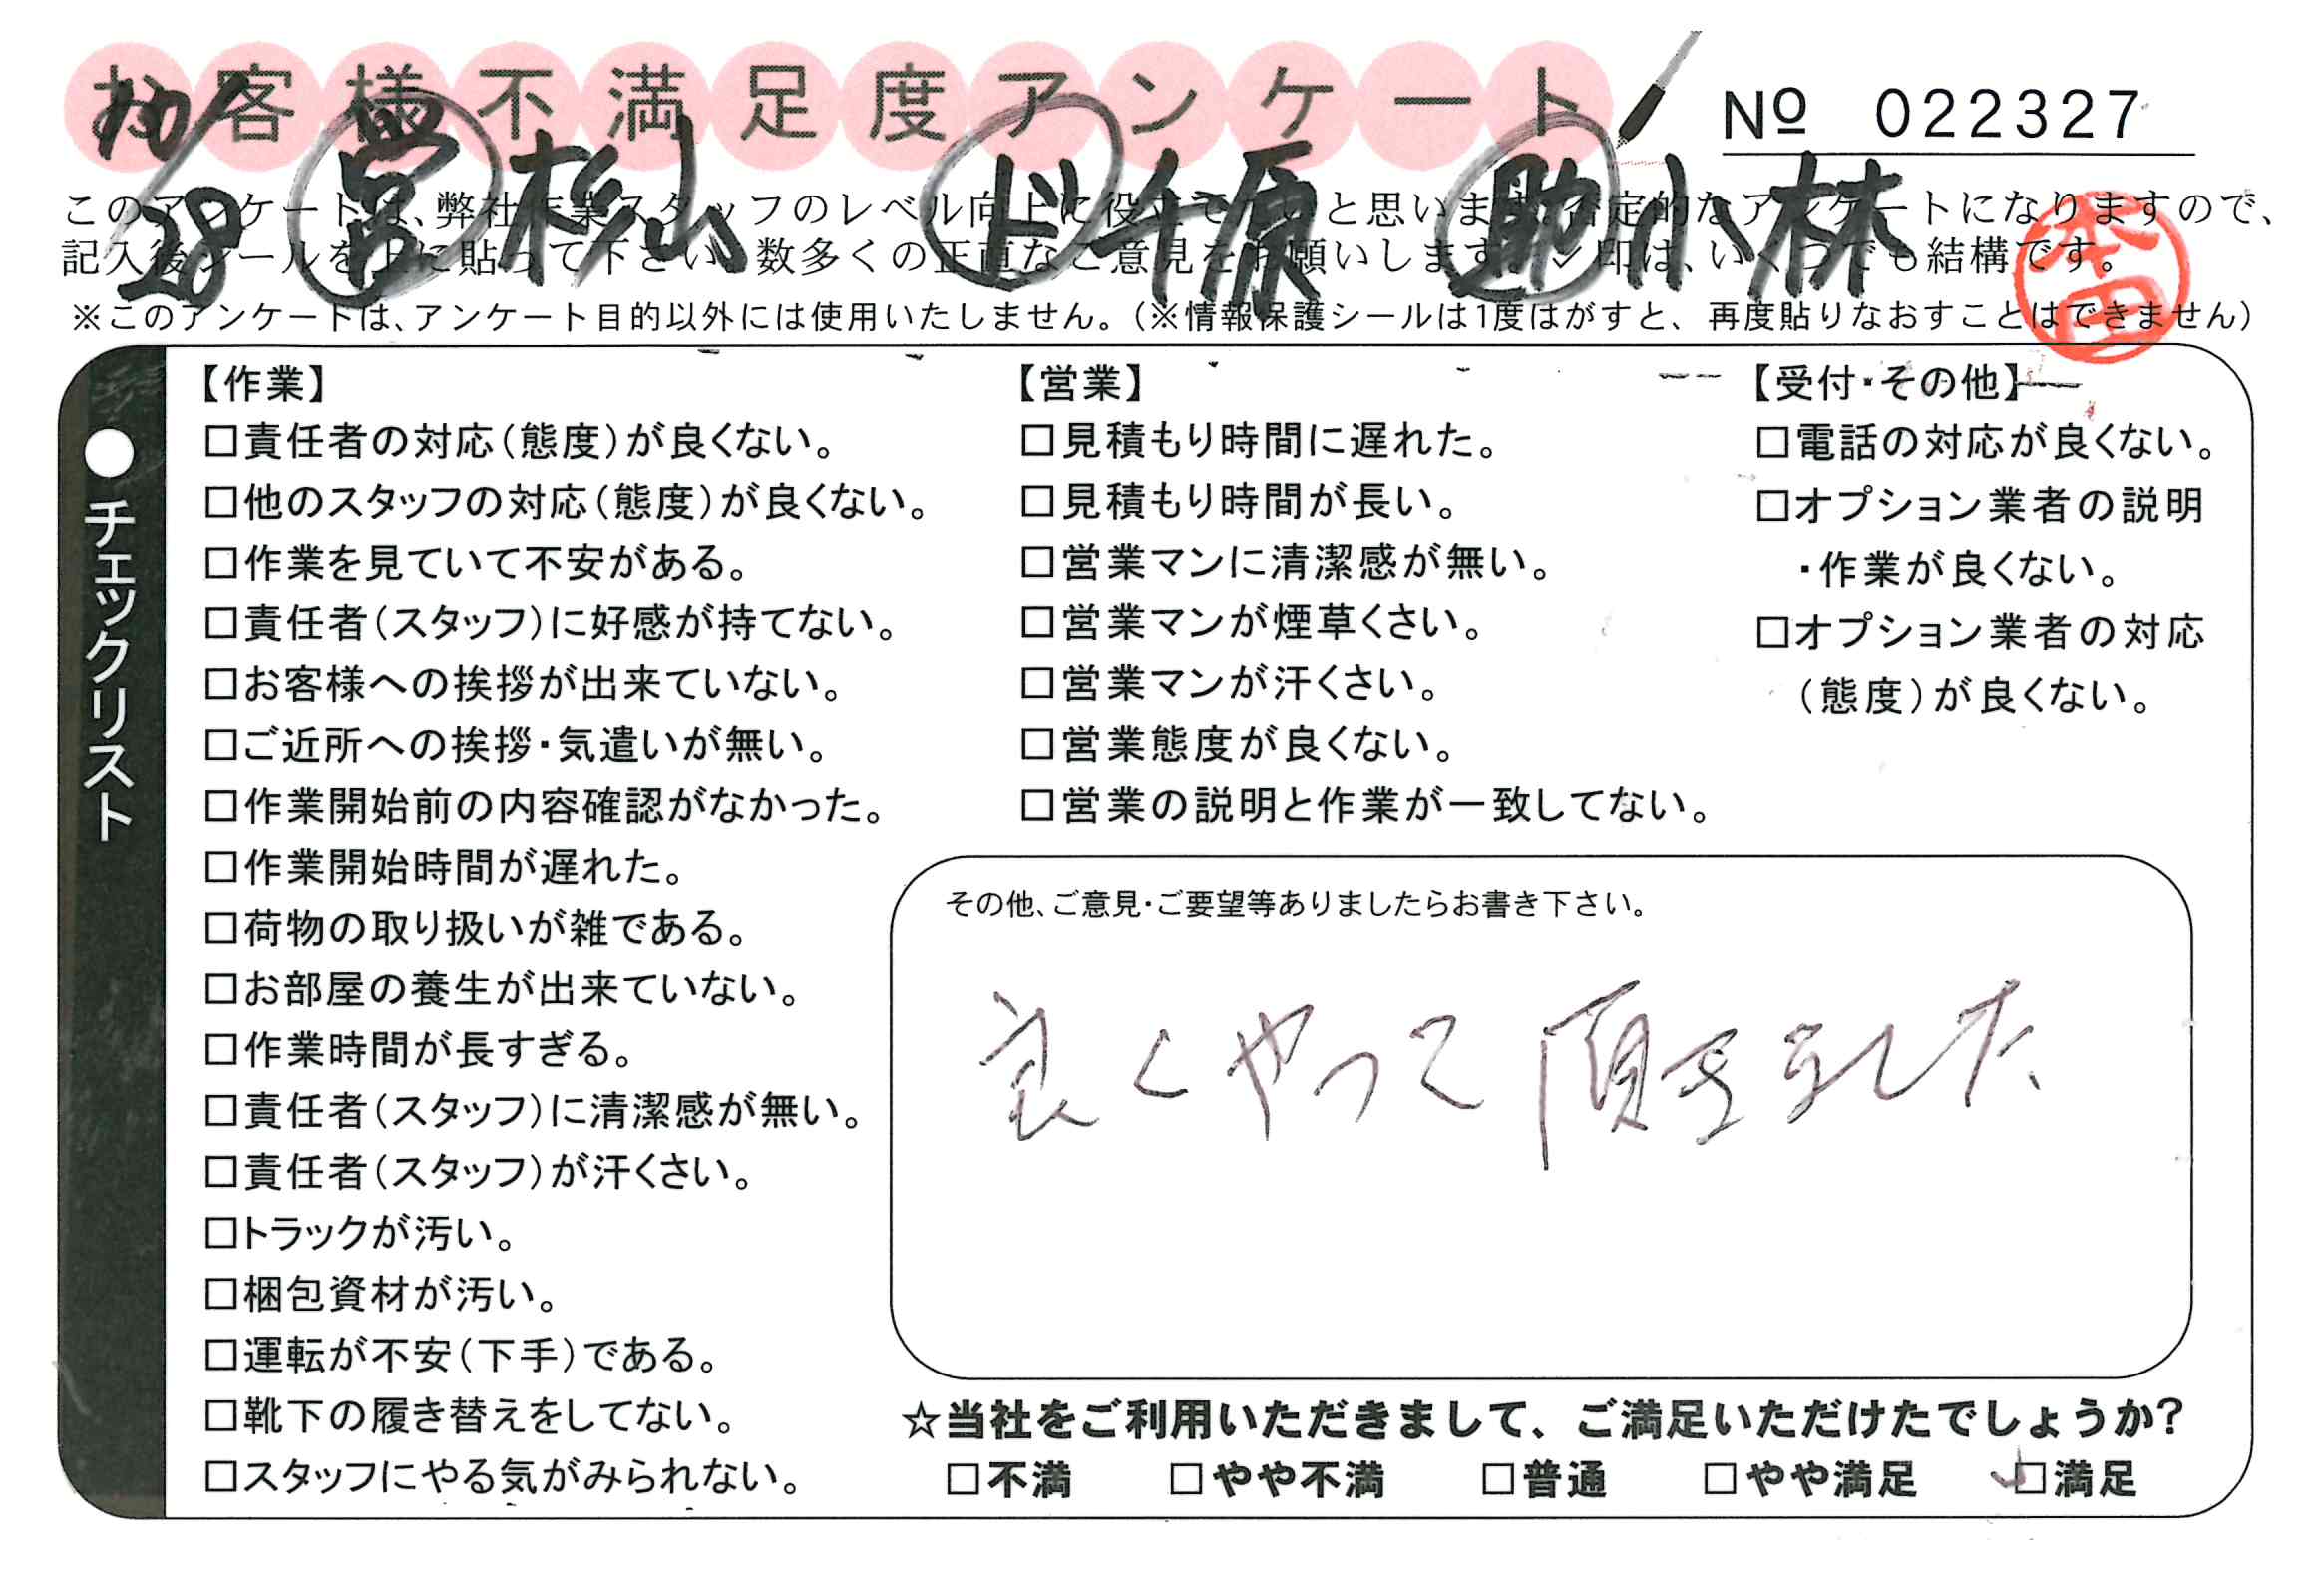 お客様不満足度アンケート
№ 022327
10/28 営 杉山 ド 千原 助 小林
本田
このアンケートは、弊社作業スタッフのレベル向上に役立てたいと思います。否定的なアンケートになりますので、
記入後シールを上に貼って下さい。数多くの正直なご意見をお願いします。レ印は、いくつでも結構です。
※このアンケートは、アンケート目的以外には使用いたしません。（※情報保護シールは1度はがすと、再度貼りなおすことはできません）
●チェックリスト
【作業】
□責任者の対応（態度）が良くない。
□他のスタッフの対応（態度）が良くない。
□作業を見ていて不安がある。
□責任者（スタッフ）に好感が持てない。
□お客様への挨拶が出来ていない。
□ご近所への挨拶・気遣いが無い。
□作業開始前の内容確認がなかった。
□作業開始時間が遅れた。
□荷物の取り扱いが雑である。
□お部屋の養生が出来ていない。
□作業時間が長すぎる。
□責任者（スタッフ）に清潔感が無い。
□責任者（スタッフ）が汗くさい。
□トラックが汚い。
□梱包資材が汚い。
□運転が不安（下手）である。
□靴下の履き替えをしてない。
□スタッフにやる気がみられない。
【営業】
□見積もり時間に遅れた。
□見積もり時間が長い。
□営業マンに清潔感が無い。
□営業マンが煙草くさい。
□営業マンが汗くさい。
□営業態度が良くない。
□営業の説明と作業が一致してない。
【受付・その他】
□電話の対応が良くない。
□オプション業者の説明
・作業が良くない。
□オプション業者の対応
（態度）が良くない。
その他、ご意見・ご要望等ありましたらお書き下さい。
良くやって頂きました
☆当社をご利用いただきまして、ご満足いただけたでしょうか？
□不満 □やや不満 □普通 □やや満足 ☑満足